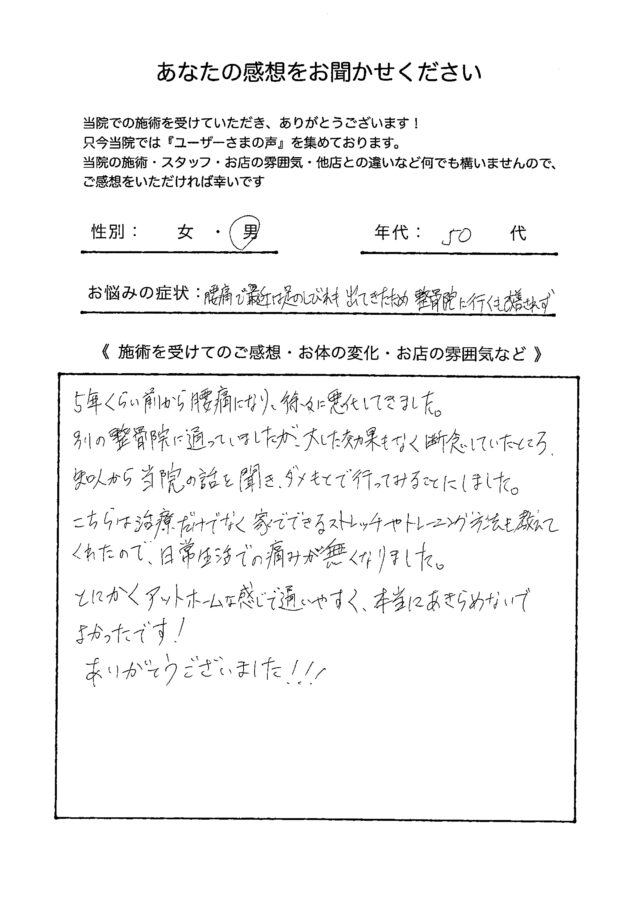 あなたの感想をお聞かせください
当院での施術を受けていただき、ありがとうございます！
只今当院では『ユーザーさまの声』を集めております。
当院の施術・スタッフ・お店の雰囲気・他店との違いなど何でも構いませんので、
ご感想をいただければ幸いです
性別： 女 ・ 男 年代： 50 代
お悩みの症状：腰痛で最近は足のしびれも出てきたため整骨院に行くも改善せず
《 施術を受けてのご感想・お体の変化・お店の雰囲気など 》
5年くらい前から腰痛になり、徐々に悪化してきました。
別の整骨院に通っていましたが、大した効果もなく断念していたところ、
知人から当院の話を聞き、ダメもとで行ってみることにしました。
こちらは治療だけでなく家でできるストレッチやトレーニング方法も教えて
くれたので、日常生活での痛みが無くなりました。
とにかくアットホームな感じで通いやすく、本当にあきらめないで
よかったです！
ありがとうございました！！！